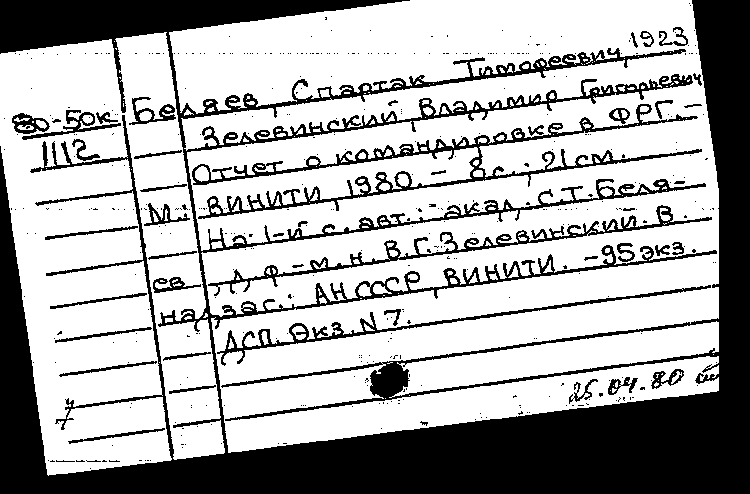 80-50к Беляев, Спартак Тимофеевич, 1923
1112 Зелевинский, Владимир Григорьевич
Отчет о командировке в ФРГ. –
М.: ВИНИТИ, 1980. – 8 с.; 21 см.
На 1-й с. авт.: акад. С.Т. Беля-
ев, д.ф.-м.н. В.Г. Зелевинский. В
надзаг.: АН СССР, ВИНИТИ. – 95 экз.
ДСП. Экз. N 7.
25.04.80